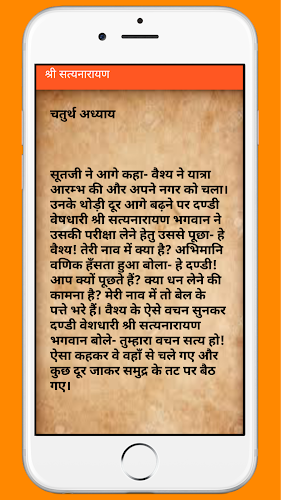 श्री सत्यनारायण
चतुर्थ अध्याय
सूतजी ने आगे कहा- वैश्य ने यात्रा
आरम्भ की और अपने नगर को चला।
उनके थोड़ी दूर आगे बढ़ने पर दण्डी
वेषधारी श्री सत्यनारायण भगवान ने
उसकी परीक्षा लेने हेतु उससे पूछा- हे
वैश्य! तेरी नाव में क्या है? अभिमानि
वणिक हँसता हुआ बोला- हे दण्डी!
आप क्यों पूछते हैं? क्या धन लेने की
कामना है? मेरी नाव में तो बेल के
पत्ते भरे हैं। वैश्य के ऐसे वचन सुनकर
दण्डी वेशधारी श्री सत्यनारायण
भगवान बोले- तुम्हारा वचन सत्य हो!
ऐसा कहकर वे वहाँ से चले गए और
कुछ दूर जाकर समुद्र के तट पर बैठ
गए।